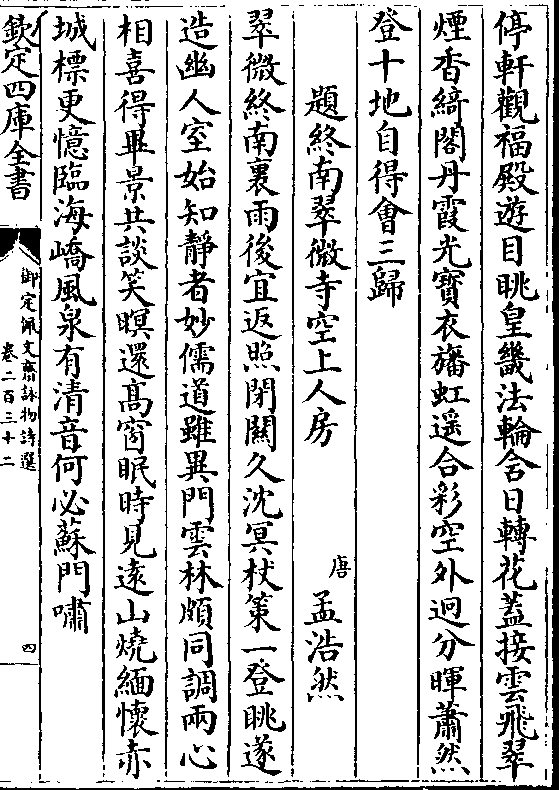 停軒觀福殿遊目眺皇畿法輪含日轉花蓋接雲飛翠
煙香綺閣丹霞光寳衣旛虹遥合彩空外迥分暉蕭然
登十地自得會三歸
題終南翠微寺空上人房
唐 孟浩然
翠微終南裏雨後宜返照閉關久沈冥杖策一登眺遂
造幽人室始知靜者妙儒道雖異門雲林頗同調兩心
相喜得畢景共談笑暝還髙窗眠時見逺山燒緬懷赤
城標更憶臨海嶠風泉有清音何必蘇門嘯
欽定四庫全書
御定佩文齋詠物詩選
卷二百三十二
四